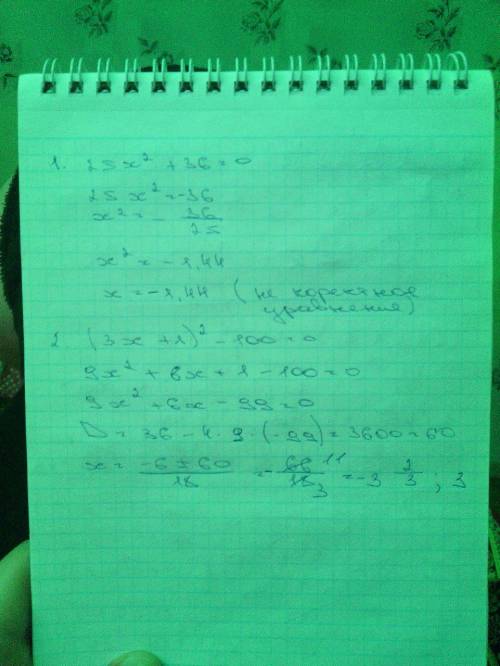 1. 25x² + 36 = 0
25x² = -36
x² = - 36/25
x² = -1,44
x = -1,44 (не коректное
уравнение)
2. (3x + 1)² - 100 = 0
9x² + 6x + 1 - 100 = 0
9x² + 6x - 99 = 0
D = 36 - 4 · 9 · (-99) = 3600 = 60
x = -6 ± 60 / 18 = - 66 11 / 18 3 = -3 2/3 ; 3